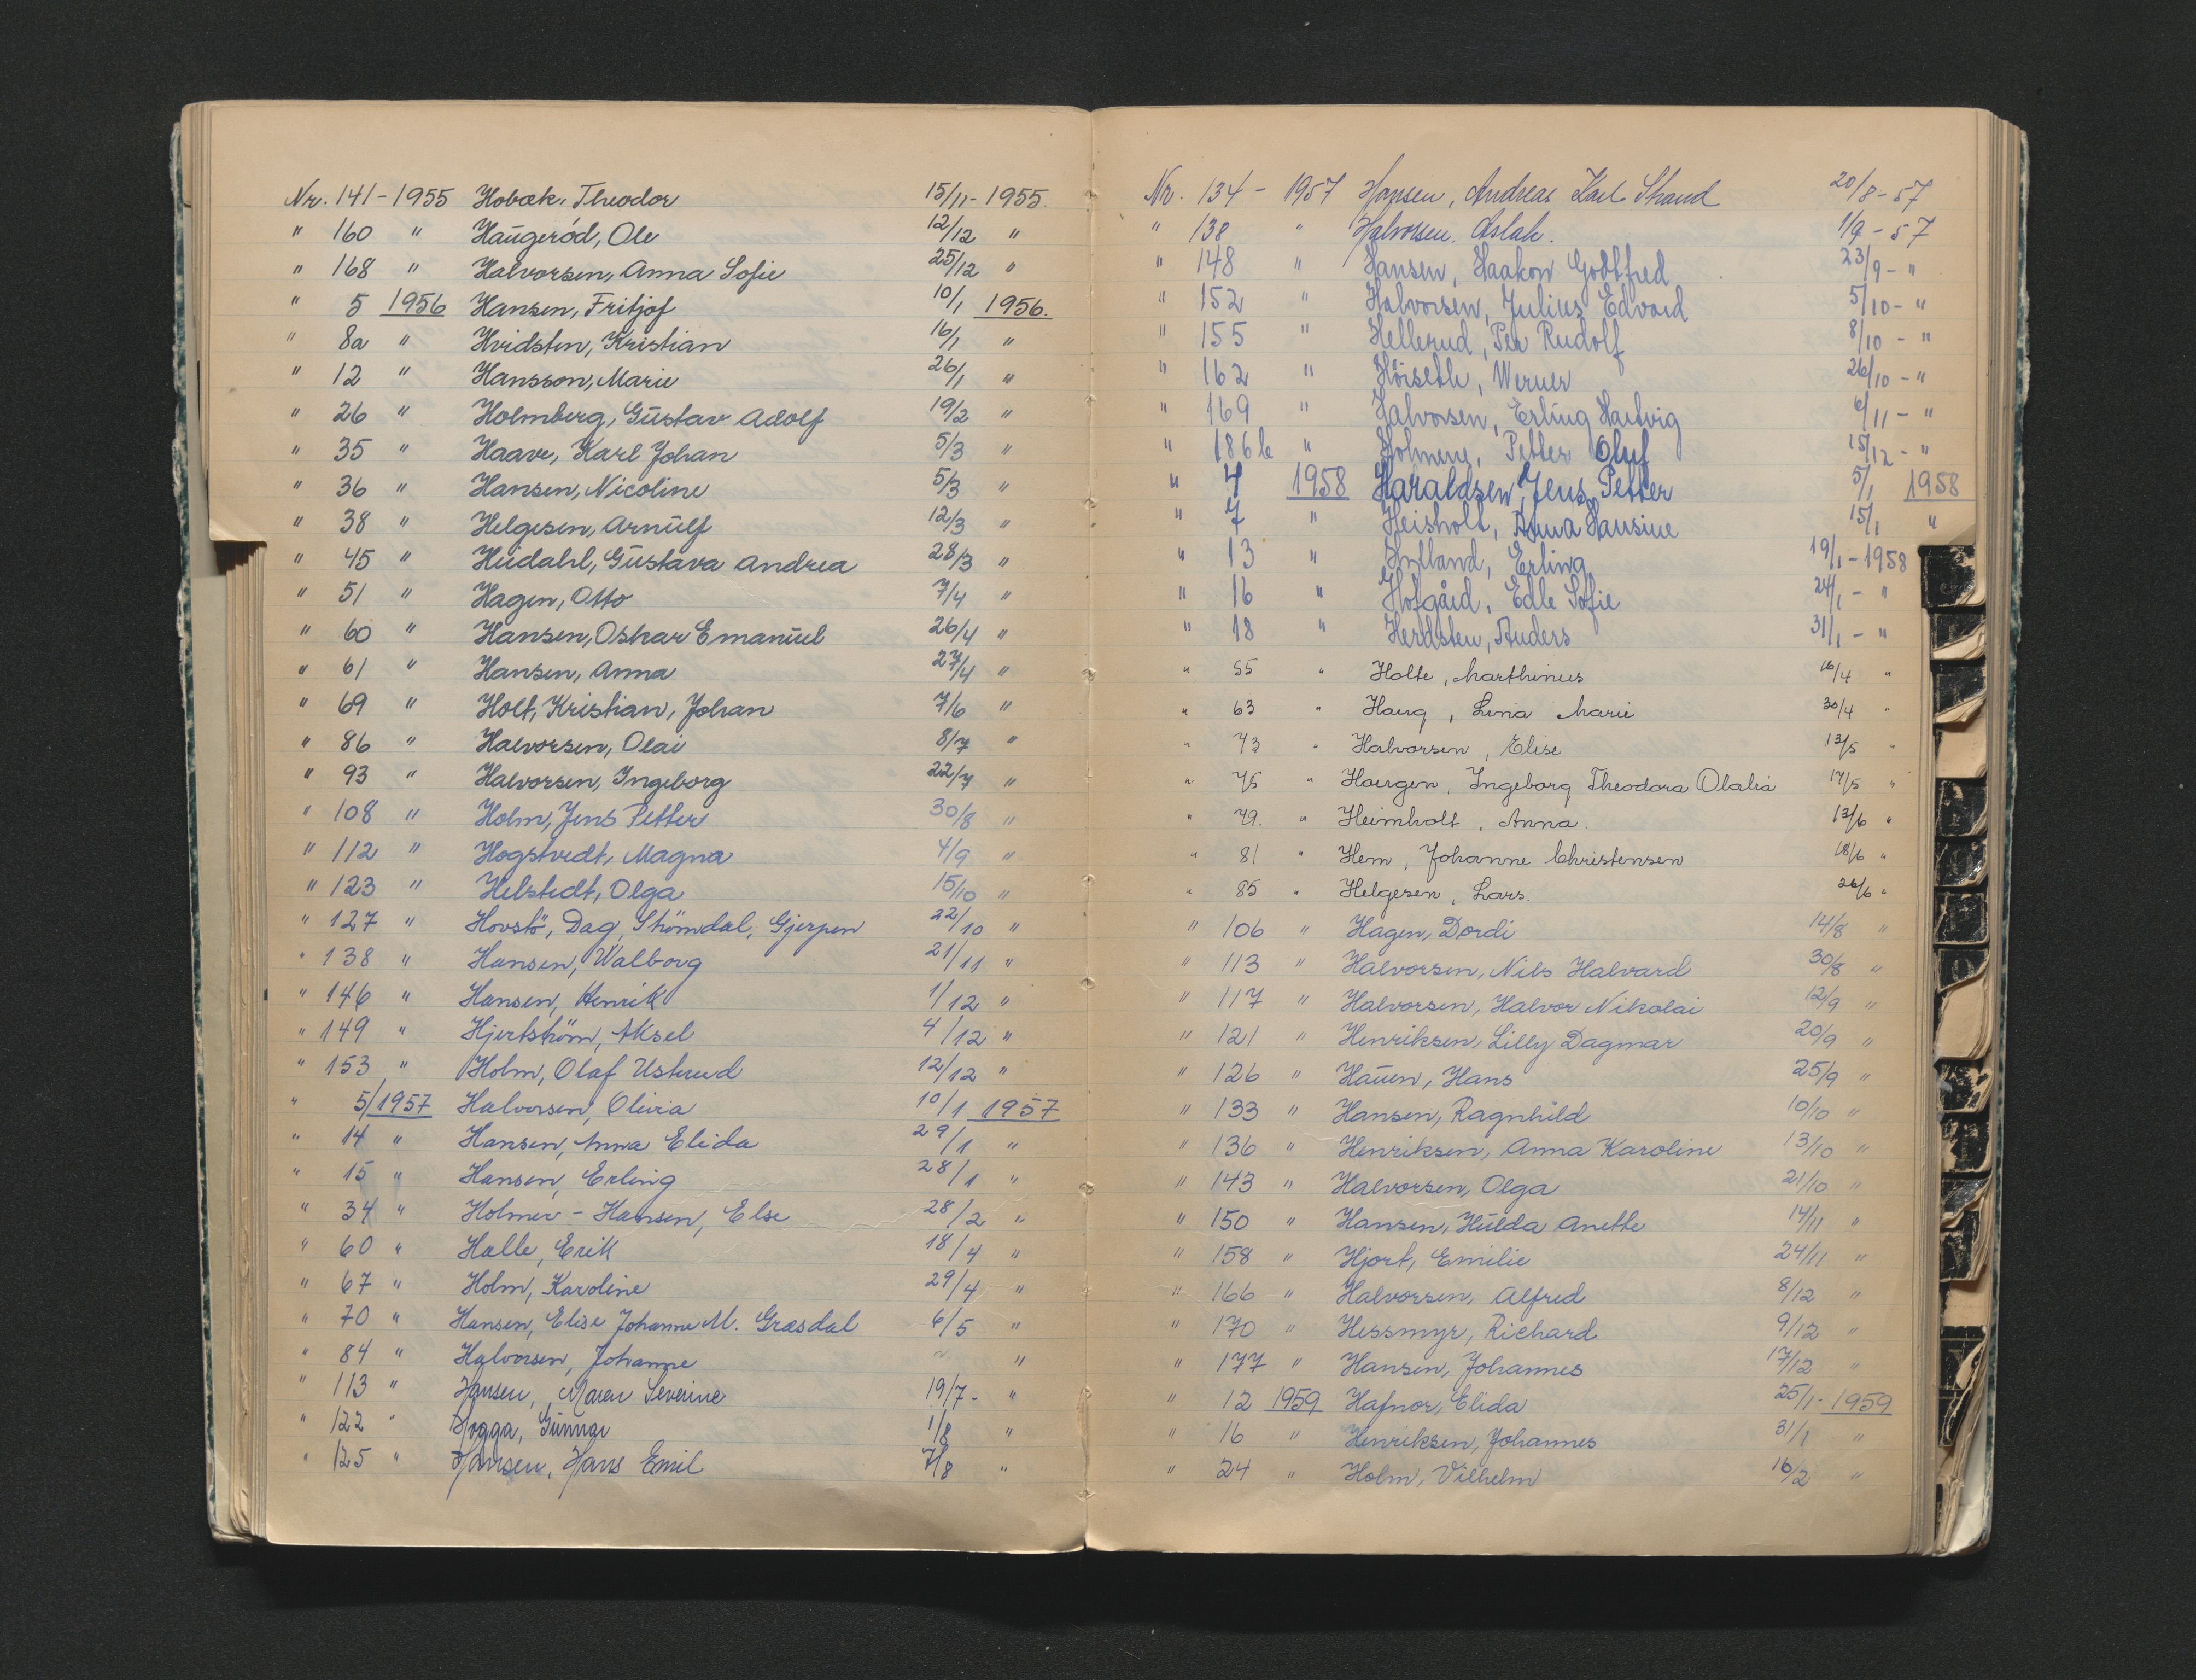 Nr. 141 - 1955 Hobæk, Theodor 15/11 - 1955.
" 160 " Haugerød, Ole 12/12 "
" 168 " Halvorsen, Anna Sofie 25/12 "
" 5 1956 Hansen, Fritjof 10/1 1956.
" 8a " Hvidsten, Kristian 16/1 "
" 12 " Hansson, Marie 26/1 "
" 26 " Holmberg, Gustav Adolf 19/2 "
" 35 " Haave, Karl Johan 5/3 "
" 36 " Hansen, Nicoline 5/3 "
" 38 " Helgesen, Arnulf 12/3 "
" 45 " Hudahl, Gustava Andrea 28/3 "
" 51 " Hagen, Otto 7/4 "
" 60 " Hansen, Oskar Emanuel 26/4 "
" 61 " Hansen, Anna 27/4 "
" 69 " Holt, Kristian, Johan 7/6 "
" 86 " Halvorsen, Olai 8/7 "
" 93 " Halvorsen, Ingeborg 22/7 "
" 108 " Holm, Jens Petter 30/8 "
" 112 " Hogstvedt, Magna 4/9 "
" 123 " Helstedt, Olga 15/10 "
" 127 " Hovstö, Dag, Strömdal, Gjerpen 22/10 "
" 138 " Hansen, Walborg 21/11 "
" 146 " Hansen, Henrik 1/12 "
" 149 " Hjertström, Aksel 4/12 "
" 153 " Holm, Olaf Ustrud 12/12 "
" 5/1957 Halvorsen, Olivia 10/1 1957
" 14 " Hansen, Anna Elida 29/1 "
" 15 " Hansen, Erling 28/1 "
" 34 " Holmer - Hansen, Else 28/2 "
" 60 " Halle, Erik 18/4 "
" 67 " Holm, Karoline 29/4 "
" 70 " Hansen, Elise Johanne M. Grasdal 6/5 "
" 84 " Halvorsen, Johanne ~ "
" 113 " Hansen, Maren Severine 19/7 - "
" 122 " Hogga, Gunnar 1/8 "
" 125 " Hansen, Hans Emil 7/8 "
Nr. 134 - 1957 Hansen, Andreas Karl Strand 20/8 - 57
" 138 " Halvorsen, Aslak. 1/9 - 57
" 148 " Hansen, Haakon Godtfred 23/9 - "
" 152 " Halvorsen, Julius Edvard 5/10 - "
" 155 " Hellerud, Per Rudolf 8/10 - "
" 162 " Höiseth, Werner 26/10 - "
" 169 " Halvorsen, Erling Hartvig 6/11 - "
" 186b " Holmene, Petter Oluf 15/12 - "
" 4 1958 Haraldsen, Jens Petter 5/1 1958
" 7 " Heisholt, Anna Hansine 15/1 "
" 13 " Hulland, Erling 19/1 - 1958
" 16 " Hofgård, Edle Sofie 24/1 - "
" 18 " Herdsten, Anders 31/1 - "
" 55 " Holte, Marthinus 16/4 "
" 63 " Haug, Lina Marie 30/4 "
" 73 " Halvorsen, Elise 13/5 "
" 75 " Haugen, Ingeborg Theodora Olalia 17/5 "
" 79. " Heimholt, Anna. 13/6 "
" 81 " Hem, Johanne Christensen 18/6 "
" 85 " Helgesen, Lars. 26/6 "
" 106 " Hagen, Dordi 14/8 "
" 113 " Halvorsen, Nils Halvard 30/8 "
" 117 " Halvorsen, Halvor Nikolai 12/9 "
" 121 " Henriksen, Lilly Dagmar 20/9 "
" 126 " Hauen, Hans 25/9 "
" 133 " Hansen, Ragnhild 10/10 "
" 136 " Henriksen, Anna Karoline 13/10 "
" 143 " Halvorsen, Olga 21/10 "
" 150 " Hansen, Hulda Anette 14/11 "
" 158 " Hjort, Emilie 24/11 "
" 166 " Halvorsen, Alfred 8/12 "
" 170 " Hessmyr, Richard 9/12 "
" 177 " Hansen, Johannes 17/12 "
" 12 1959 Hafnor, Elida 25/1 - 1959
" 16 " Henriksen, Johannes 31/1 "
" 24 " Holm, Vilhelm 16/2 "